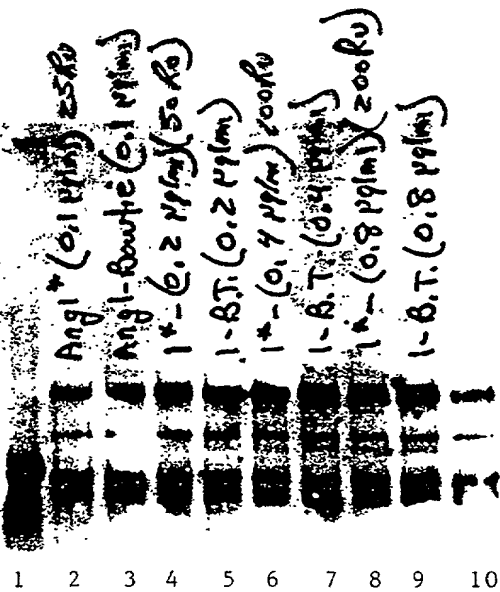 Ang1* (0.1 µg/ml) 25RU
Ang1-Bowtie (0.1 µg/ml)
1*- (0.2 µg/ml)(50 RU)
1-B.T. (0.2 µg/ml)
1*- (0.4 µg/ml) 200RU
1-B.T. (0.4 µg/ml)
1*- (0.8 µg/ml)(200RU)
1-B.T. (0.8 µg/ml)
1 2 3 4 5 6 7 8 9 10